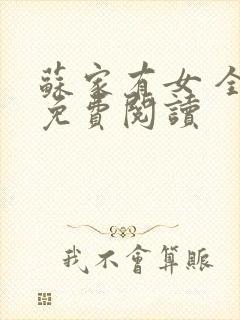 蘇家有女 全
免費閱讀
我不會算賬